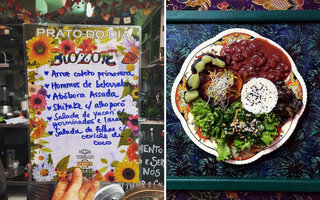 PRATO DO DIA
31.07.2018
Arroz cateto primavera
Hommus de beterraba
Abóbora Assada
Shitake c/ alho poró
Salada de yacon,
germinados e
Salada de folhas c/
ceviche de
coco